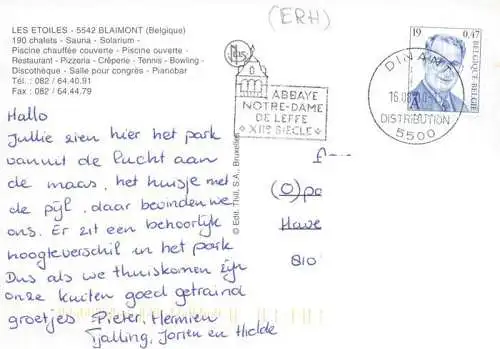 (ERH)
LES ETOILES - 5542 BLAIMONT (Belgique)
190 chalets - Sauna - Solarium -
Piscine chauffée couverte - Piscine ouverte -
Restaurant - Pizzeria - Crêperie - Tennis - Bowling -
Discothèque - Salle pour congrès - Pianobar
Tél. : 082 / 64.40.91
Fax : 082 / 64.44.79
ABBAYE
NOTRE-DAME
DE LEFFE
XIIe SIECLE
19 0,47
BELGIQUE-BELGIË
DINANT
DISTRIBUTION
5500
© Edit. Thill, S.A., Bruxelles
Hallo
Jullie zien hier het park
vanuit de lucht aan
de maas, het huisje met
de pijl, daar bevinden we
ons. Er zit een behoorlijk
hoogteverschil in het park
Dus als we thuiskomen zijn
onze kuiten goed getraind
groetjes Pieter, Hermien
Tjalling, Jorien en Hidde
(O)pa
Hawe
810